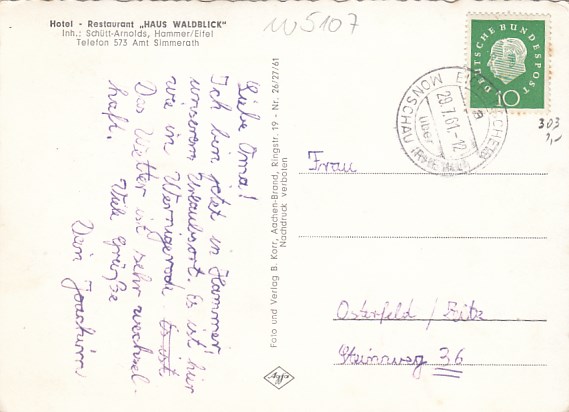 Hotel - Restaurant „HAUS WALDBLICK"
Inh.: Schütt-Arnolds, Hammer/Eifel
Telefon 573 Amt Simmerath
W5107
Liebe Oma!
Ich bin jetzt in Hammer!
unserem Urlaubsort. Es ist hier
wie in Wernigerode. Es ist
Das Wetter ist sehr wechsel-
haft. Viele Grüße
Dein Joachim
Foto und Verlag B. Korr, Aachen-Brand, Ringstr. 19 - Nr. 26/27/61
Nachdruck verboten
DEUTSCHE BUNDESPOST
10
MONSCHAU
über
29.7.61-12
303
Frau
Osterfeld /
Steinweg 36